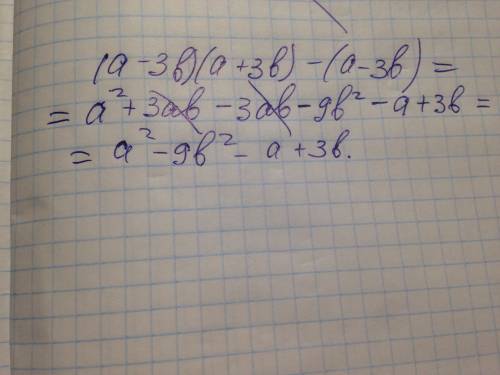 (a - 3в)(a + 3в) - (a - 3в) =
= a² + 3aв - 3aв - 9в² - a + 3в =
= a² - 9в² - a + 3в.